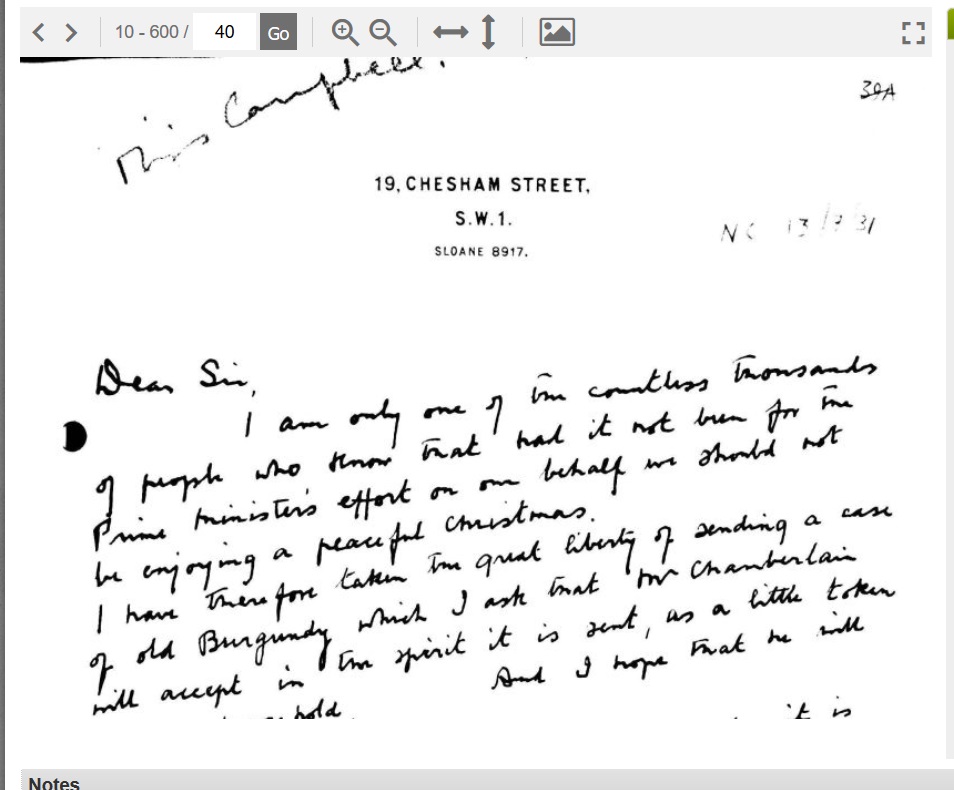 10 - 600 / 40 Go
Miss Campbell.
39A
19, CHESHAM STREET,
S.W.1.
SLOANE 8917.
NC 13/7/31
Dear Sir,
I am only one of the countless thousands
of people who know that had it not been for the
Prime Minister's effort on our behalf we should not
be enjoying a peaceful Christmas.
I have therefore taken the great liberty of sending a case
of old Burgundy which I ask that Mr Chamberlain
will accept in the spirit it is sent, as a little token
And I hope that he will
hold
it is
Notes